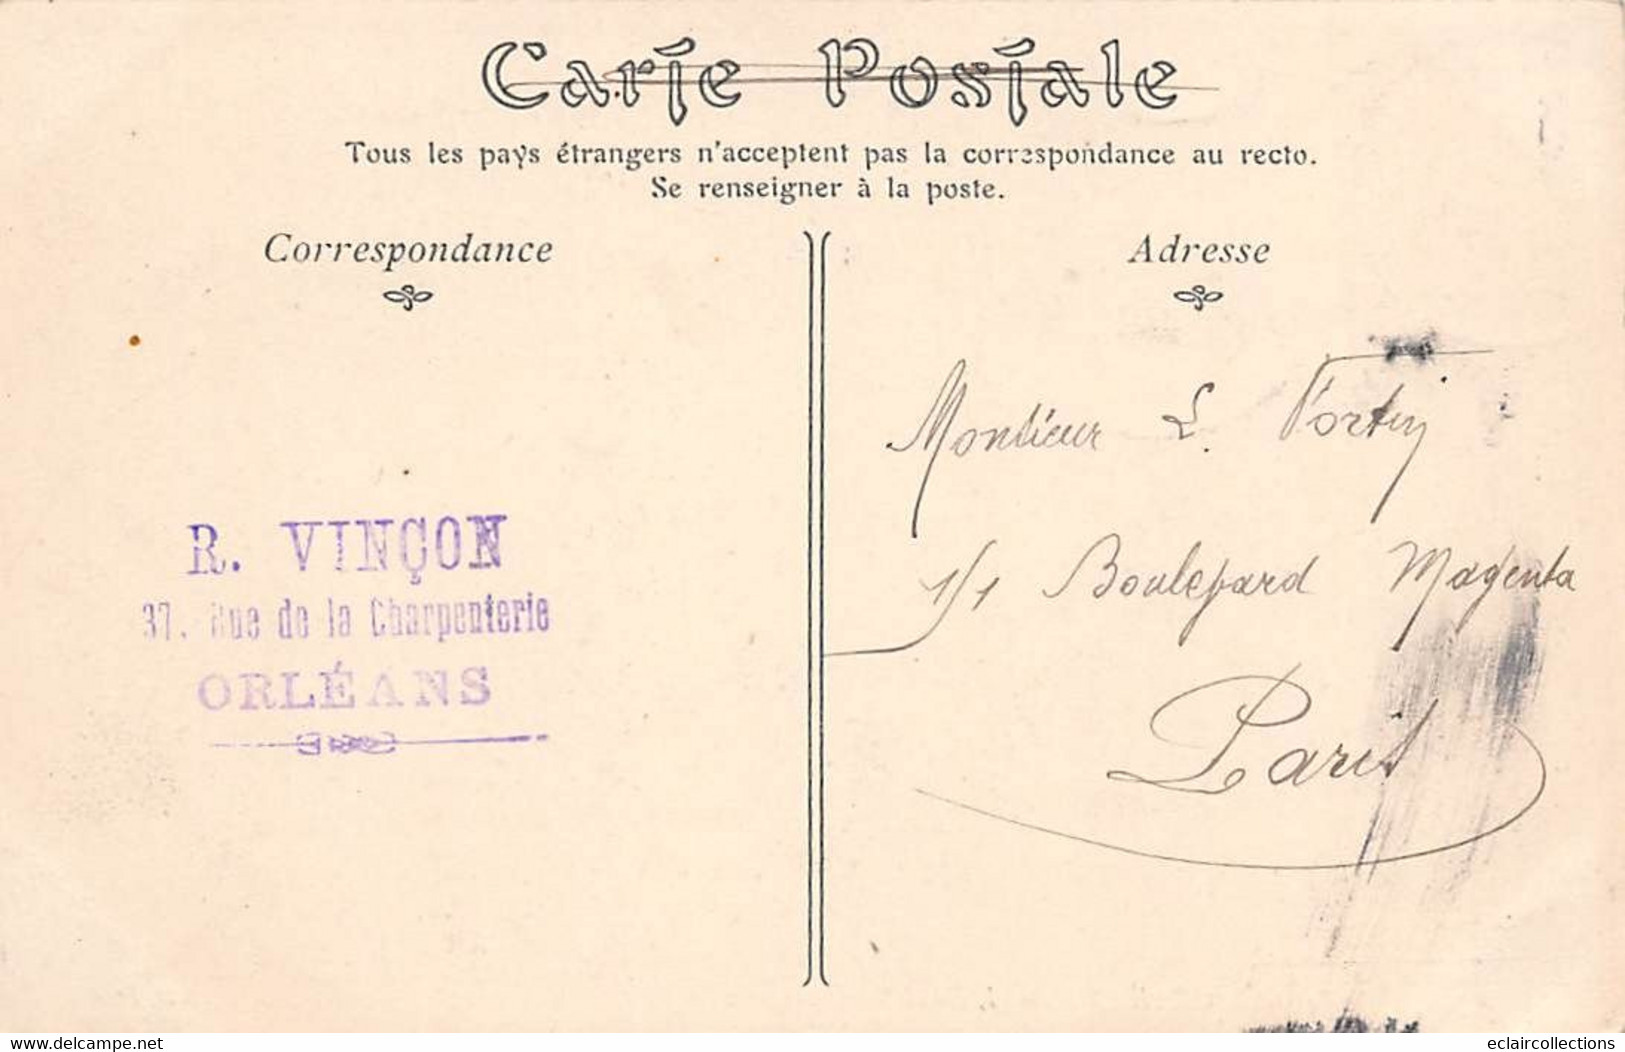 Carte Postale
Tous les pays étrangers n'acceptent pas la correspondance au recto.
Se renseigner à la poste.
Correspondance
Adresse
Monsieur L.
Boulevard Magenta
Paris
R. VINÇON
37, Rue de la Charpenterie
ORLÉANS
www.delcampe.net
eclaircollections